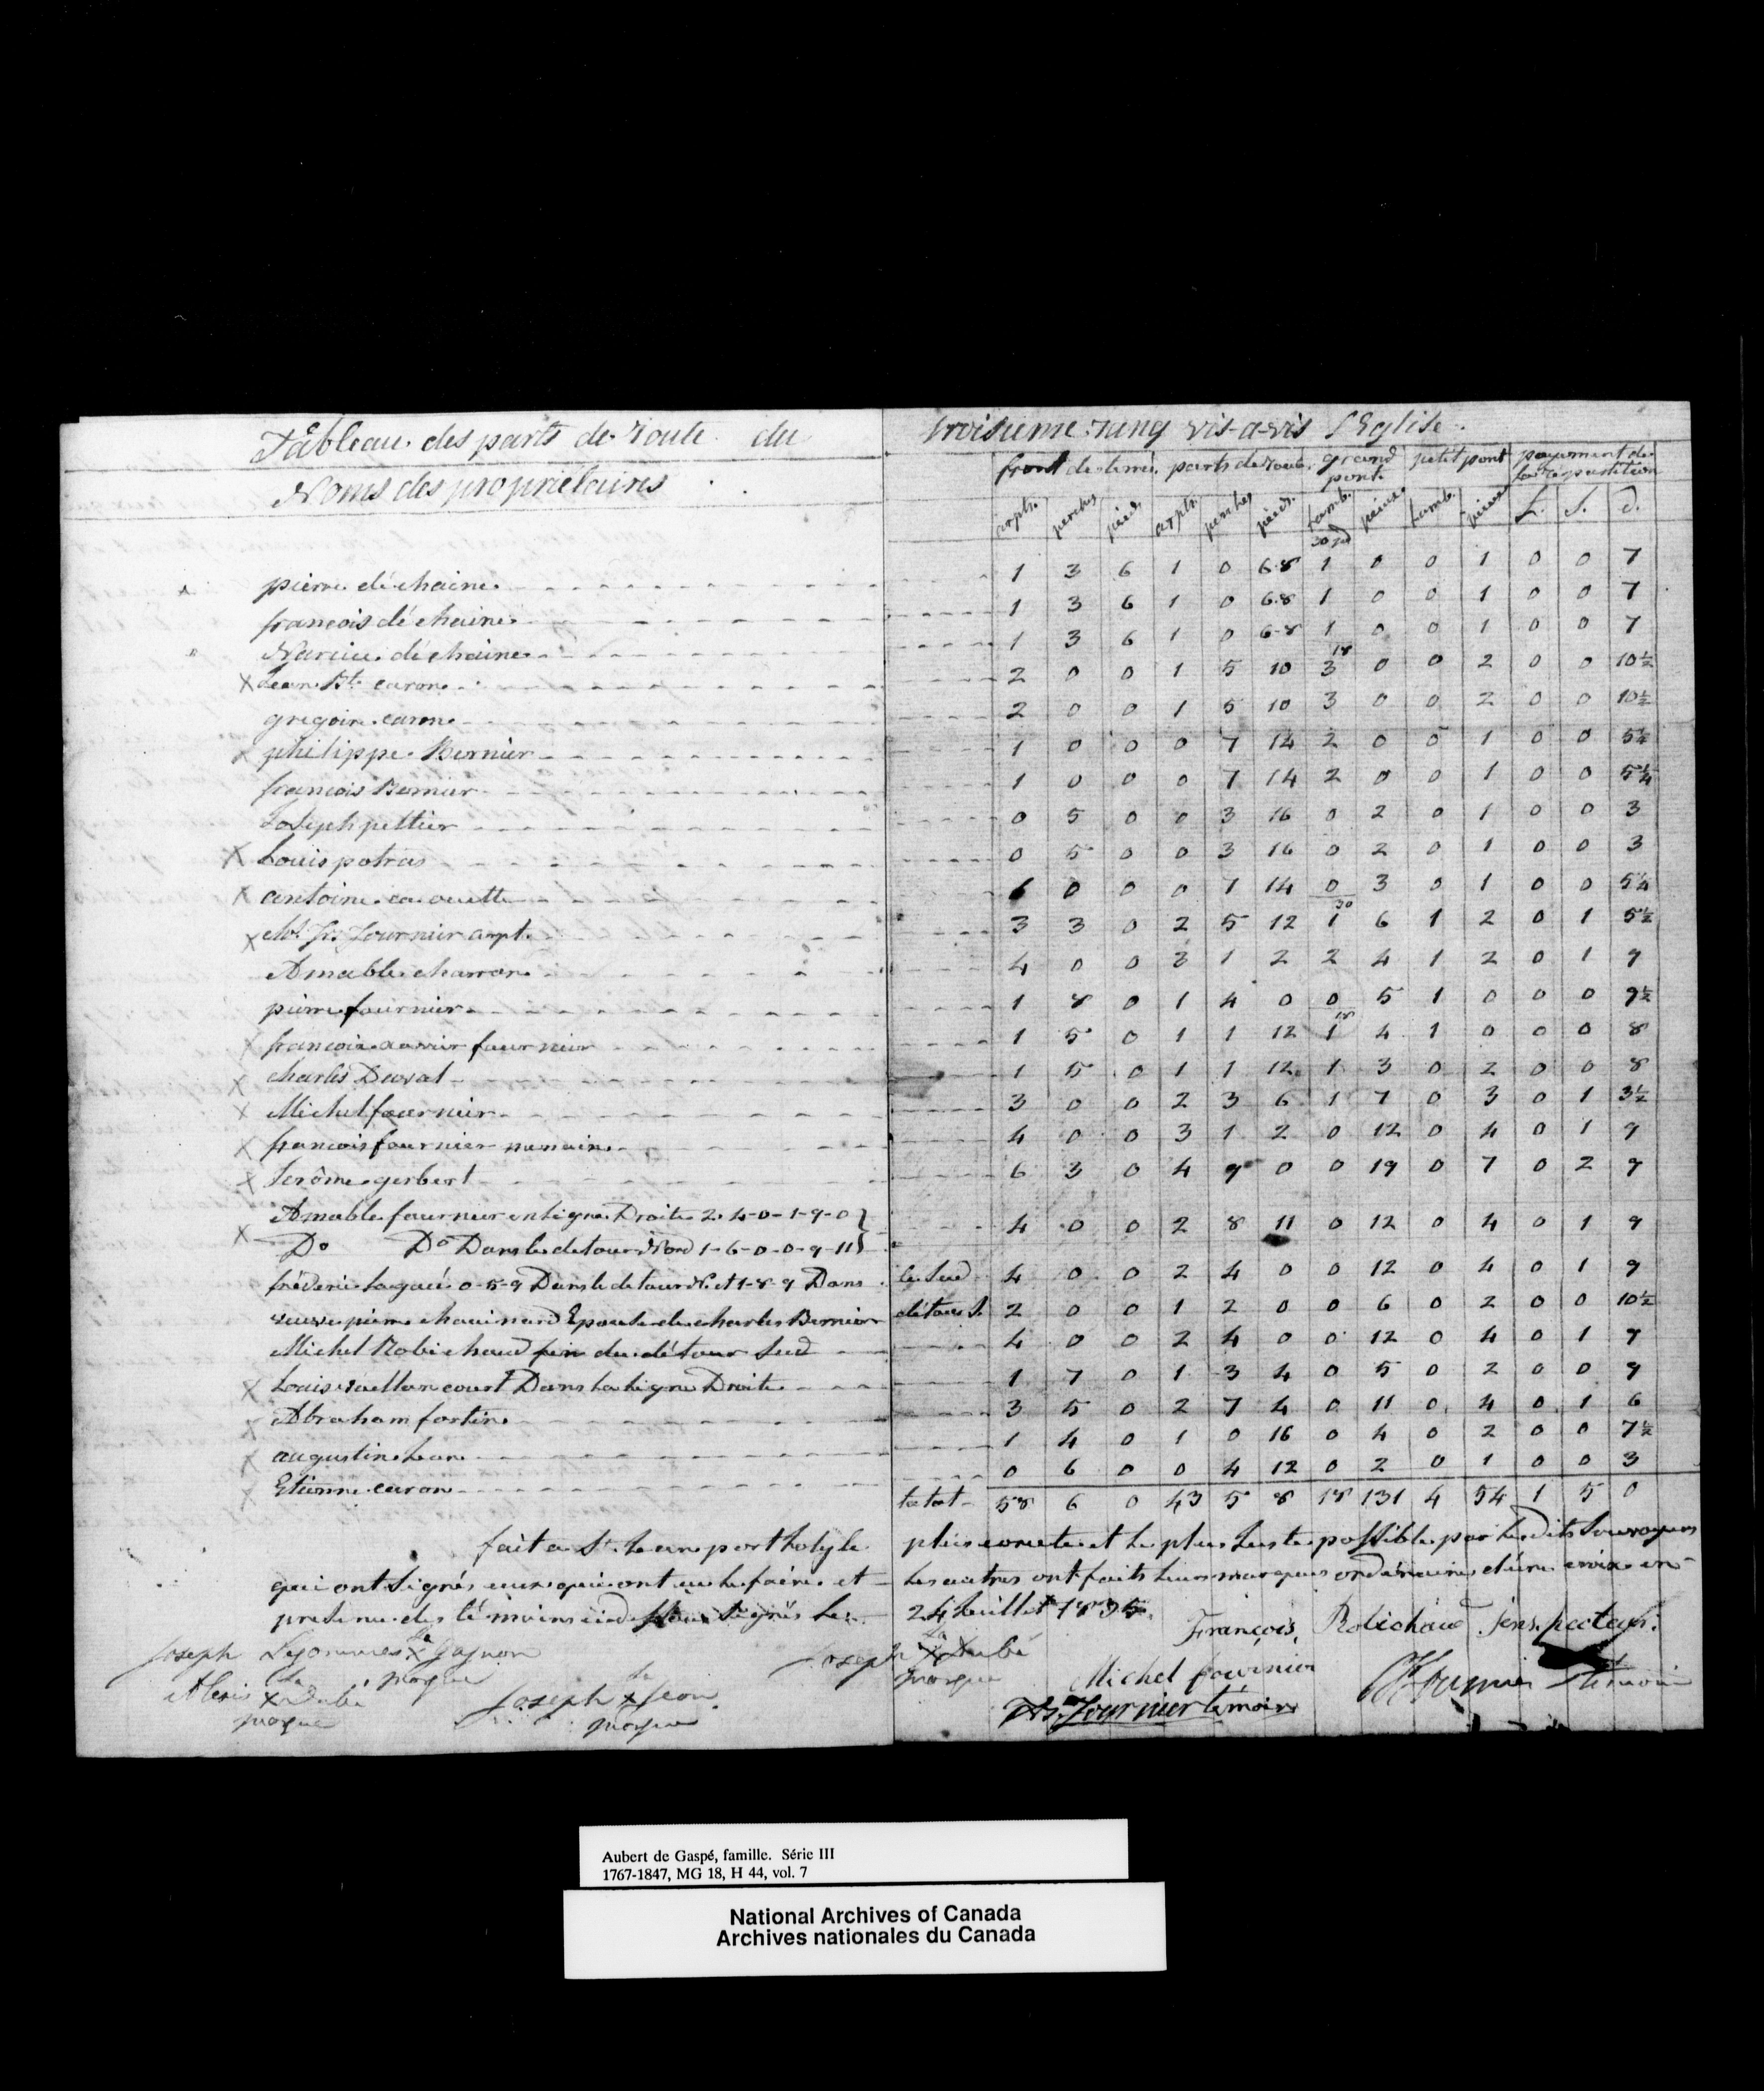 Tableau des parts de route du troisieme rang vis-a-vis l'Eglise.
Noms des propriétairs
front de terre. parts de route. grand pont. petit pont payement de la repartition
arpts. perches pieds arpts. perches pieds. lamb. 30 pd pieux lamb. pieux L. S. d.
pierre déchaine 1 3 6 1 0 6-8 1 0 0 1 0 0 7
francois déchaine 1 3 6 1 0 6-8 1 0 0 1 0 0 7
Narcice déchaine 1 3 6 1 0 6-8 1 0 0 1 0 0 7
X Jean Bte caron 2 0 0 1 5 10 3 18 0 0 2 0 0 10½
gregoire caron 2 0 0 1 5 10 3 0 0 2 0 0 10½
X philippe Bernier 1 0 0 0 7 14 2 0 0 1 0 0 5¼
francois Bernier 1 0 0 0 7 14 2 0 0 1 0 0 5¼
Joseph peltier 0 5 0 0 3 16 0 2 0 1 0 0 3
X Louis potras 0 5 0 0 3 16 0 2 0 1 0 0 3
X antoine caouette 0 0 0 0 7 14 0 3 0 1 0 0 5¼
X Fournier arpt. 3 3 0 2 5 12 1 30 6 1 2 0 1 5½
Amable charron 4 0 0 3 1 2 2 4 1 2 0 1 9
pierre fournier 1 8 0 1 4 0 0 5 1 0 0 0 9½
X francois xavier fournier 1 5 0 1 1 12 1 18 4 1 0 0 0 8
X charles Duval 1 5 0 1 1 12 1 3 0 2 0 0 8
X Michel fournier 3 0 0 2 3 6 1 7 0 3 0 1 3½
X francois fournier 4 0 0 3 1 2 0 12 0 4 0 1 9
X Jerôme gerbert 6 3 0 4 9 0 0 19 0 7 0 2 9
Amable fournier en ligne Droite 2-4-0-1-9-0 }
X Do Do Dans le detour Nord 1-6-0-0-9-11 } 4 0 0 2 8 11 0 12 0 4 0 1 9
fréderic lagacé 0-5-9 Dans le detour N. et 1-8-9 Dans le Sud 4 0 0 2 4 0 0 12 0 4 0 1 9
veuve pierre chouinard Epouse de charles Bernier détour S. 2 0 0 1 2 0 0 6 0 2 0 0 10½
Michel Robichaud fin du détour Sud 4 0 0 2 4 0 0 12 0 4 0 1 9
X Louis vaillancourt Dans la ligne Droite 1 7 0 1 3 4 0 5 0 2 0 0 9
X Abraham fortin 3 5 0 2 7 4 0 11 0 4 0 1 6
X augustin Jean 1 4 0 1 0 16 0 4 0 2 0 0 7½
X Etienne caron 0 6 0 0 4 12 0 2 0 1 0 0 3
le tot 58 6 0 43 5 8 18 131 4 54 1 5 0
fait a St. Jean port holy le plus correcte et le plus Juste possible par les Dits Sousvoyers
qui ont Signés ceux qui ont eu le faire et les autres ont faits leurs marques ordénaires d'une croix en
presence des témoins Signés le 24 Juillet 1835.
François Robichaud Jens.pecteur.
Joseph Lajeunnes X Gagnon
la marque
Joseph X Dubé
la marque
Michel fournier
témoin
Alexis X Dubé
la marque
Joseph X Jean
la marque
Fournier témoin
Aubert de Gaspé, famille. Série III
1767-1847, MG 18, H 44, vol. 7
National Archives of Canada
Archives nationales du Canada